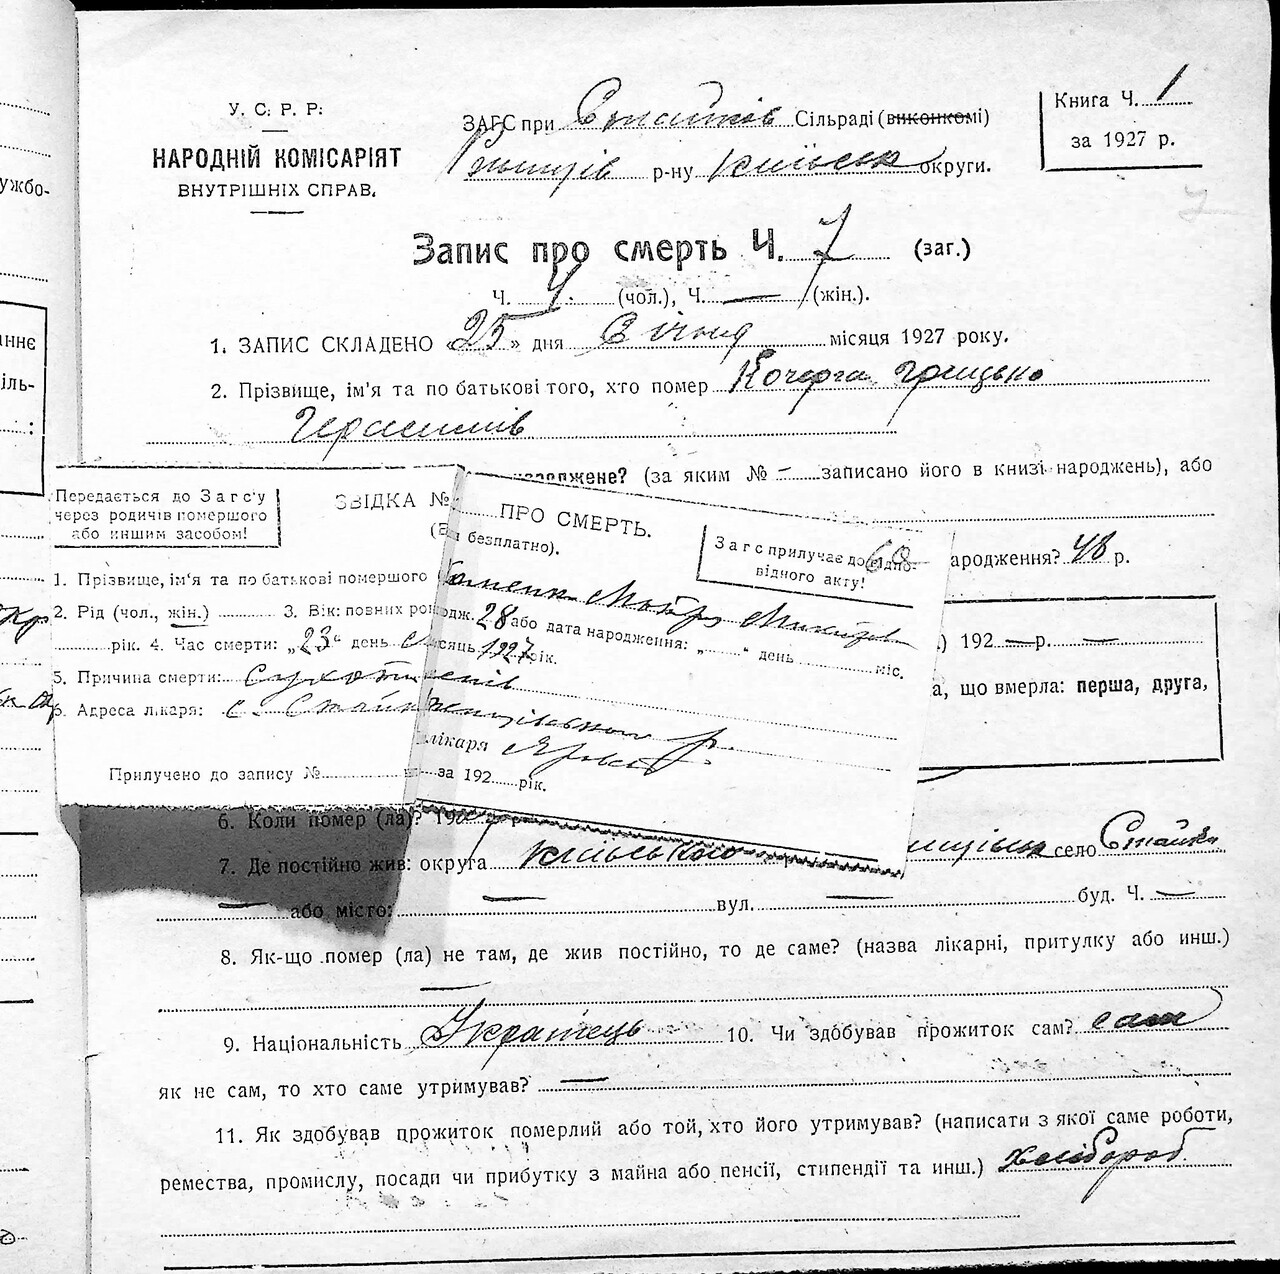 У. С. Р. Р.
НАРОДНІЙ КОМІСАРІЯТ
ВНУТРІШНІХ СПРАВ.
ЗАГС при Стайків Сільраді (виконкомі)
р-ну Київськ округи.
Книга Ч. 1
за 1927 р.
Запис про смерть Ч. 7 (заг.)
Ч. 4. (чол.), Ч. — (жін.).
1. ЗАПИС СКЛАДЕНО «25» дня Січня місяця 1927 року.
2. Прізвище, ім'я та по батькові того, хто помер Кочерга Грицько
Герасимів
народжене? (за яким № – записано його в книзі народжень), або
ародження? 48 р.
) 192 — р. —
а, що вмерла: перша, друга,
Передається до Загсу
через родичів помершого
або иншим засобом!
ЗВІДКА № ПРО СМЕРТЬ.
безплатно).
Загс прилучає до відпо-
відного акту!
68
1. Прізвище, ім'я та по батькові помершого
2. Рід (чол., жін.) 3. Вік: повних рок 28 або дата народження: „ “ день міс.
рік. 4. Час смерти: „23“ день місяць 1927 рік.
5. Причина смерти: Сухоти
6. Адреса лікаря: с. Стайки
лікаря
Прилучено до запису № за 192 рік.
6. Коли помер (ла)? 19
7. Де постійно жив: округа Київського село Стайки
або місто: — вул. — буд. Ч. —
8. Як-що помер (ла) не там, де жив постійно, то де саме? (назва лікарні, притулку або инш.)
—
9. Національність Українець 10. Чи здобував прожиток сам? сам
як не сам, то хто саме утримував? —
11. Як здобував прожиток померлий або той, хто його утримував? (написати з якої саме роботи,
ремества, промислу, посади чи прибутку з майна або пенсії, стипендії та инш.) хлібороб